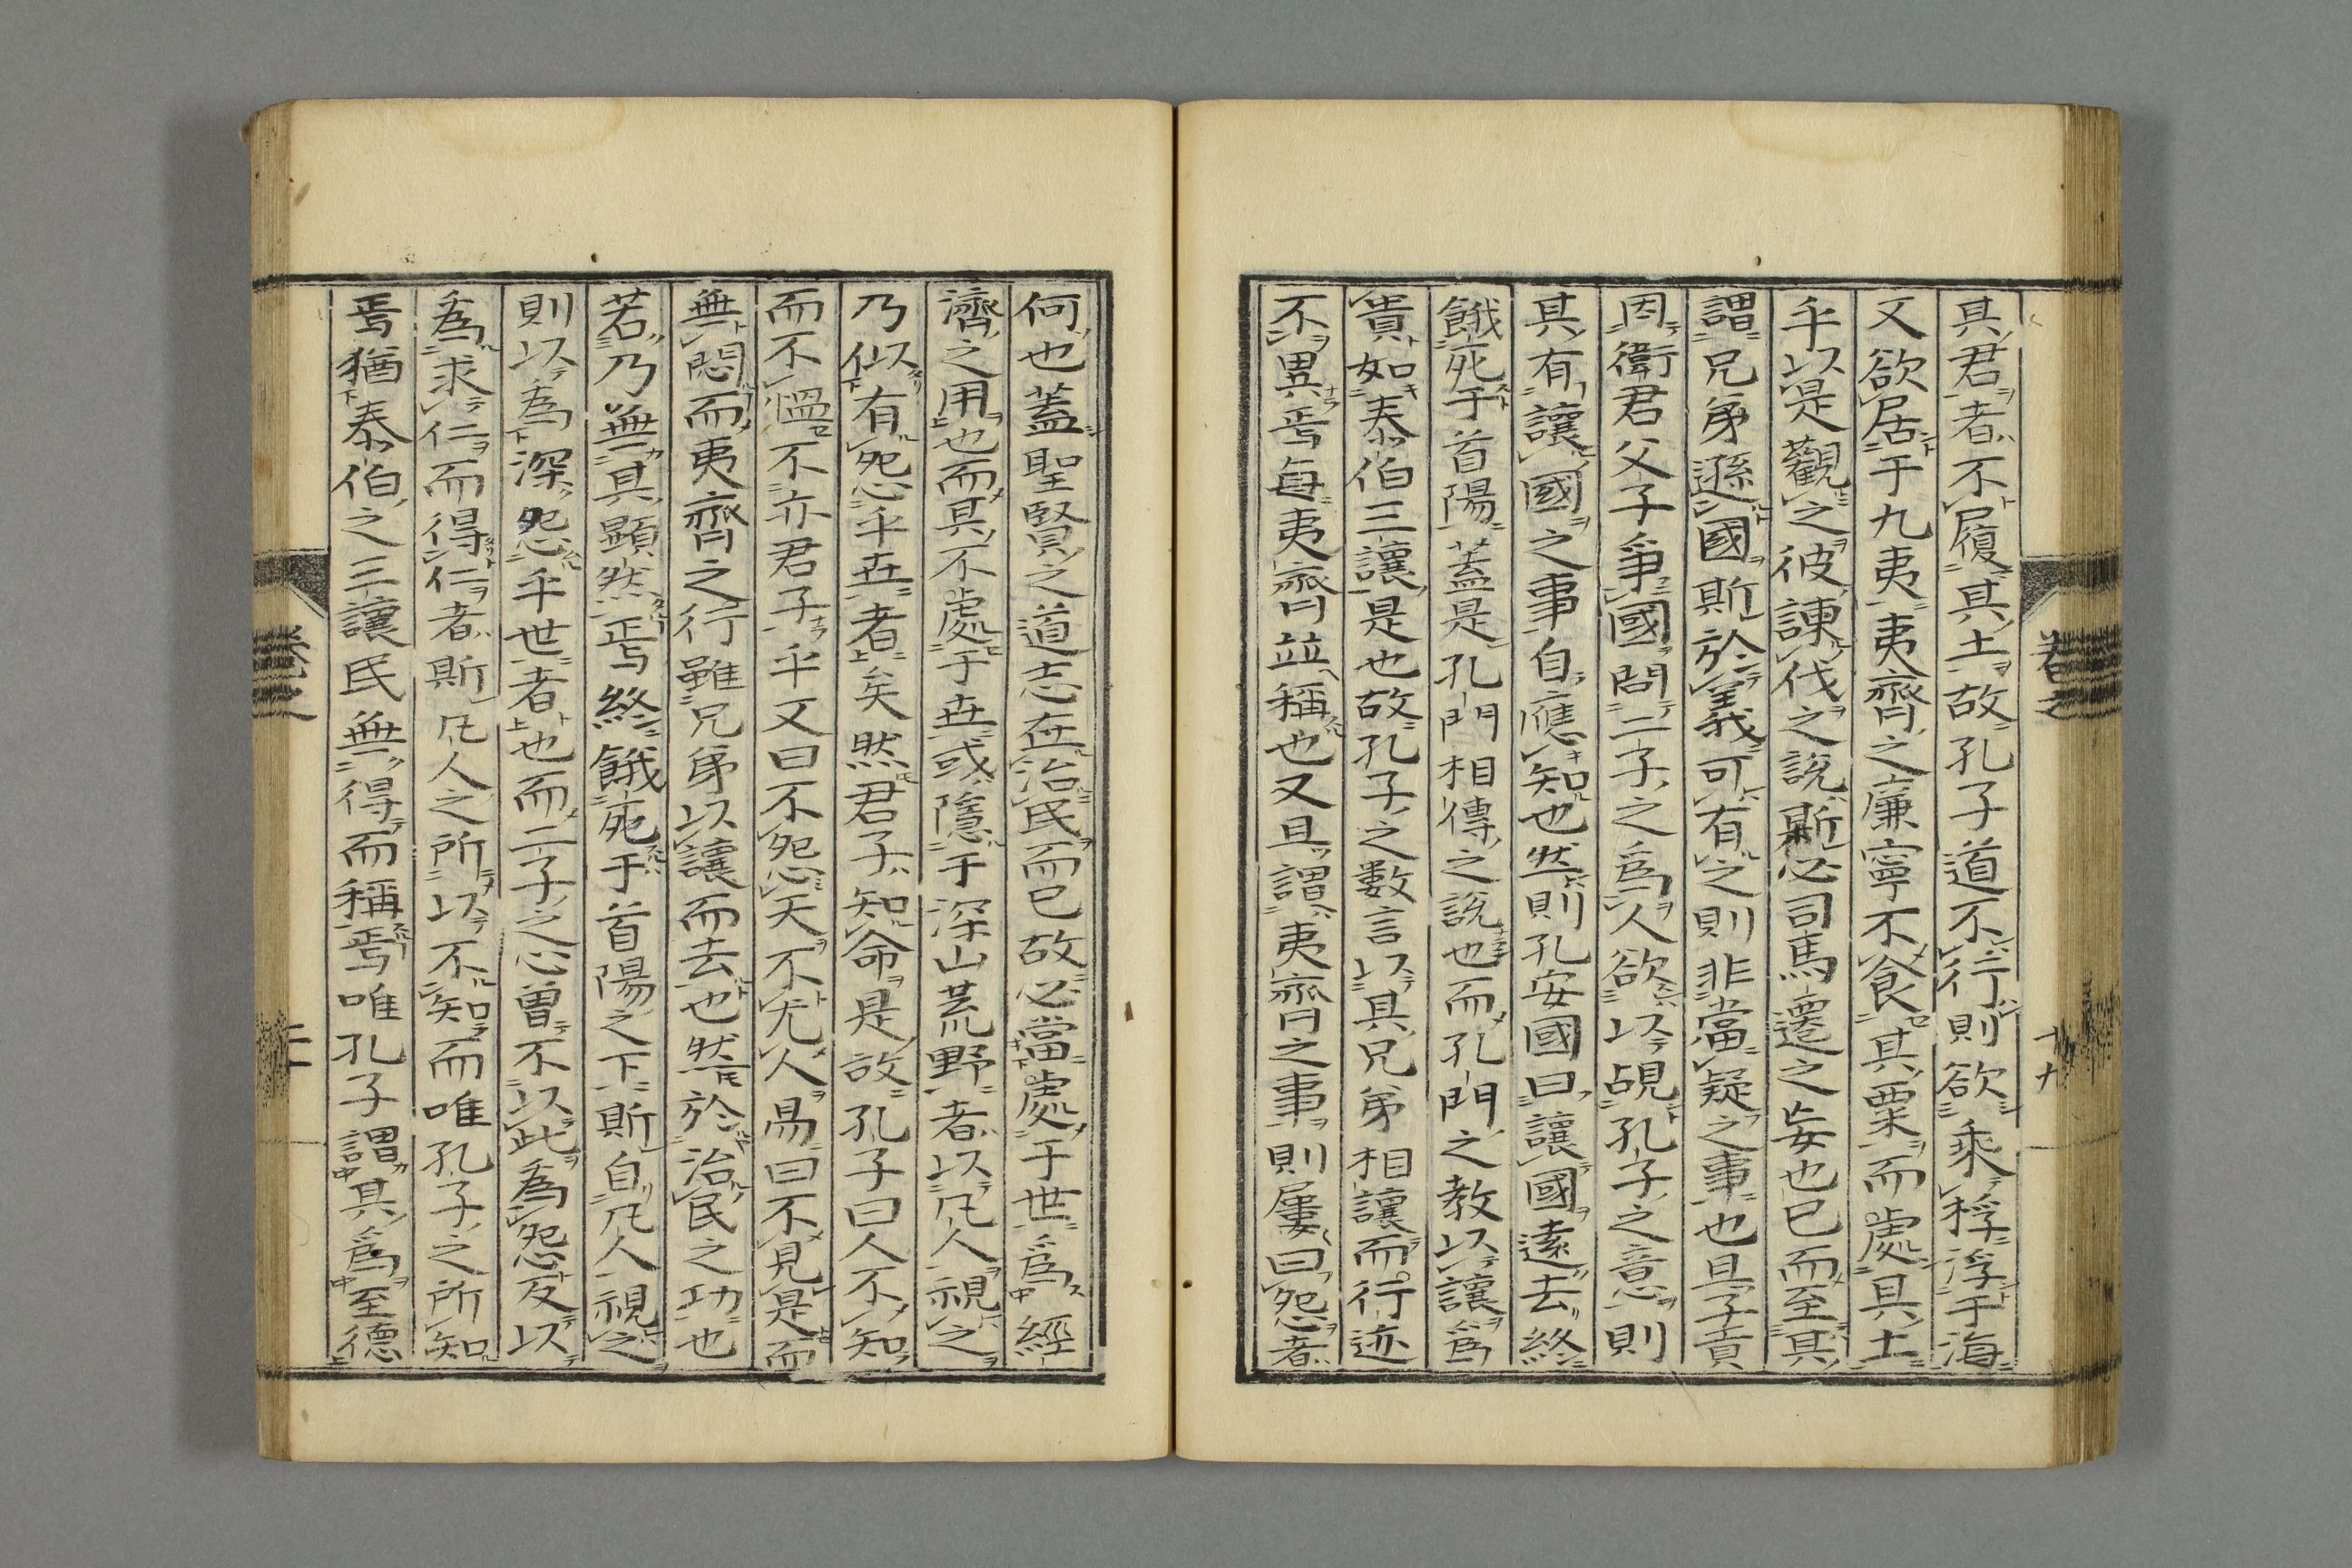 其君者不履其土故孔子道不行則欲乘桴浮于海
又欲居于九夷夷齊之廉寧不食其粟而處其土
乎以是觀之彼諫伐之說斯必司馬遷之妄也已而至其
謂兄弟遜國斯於義可有之則非當疑之事也且子貢
因衛君父子爭國問二子之爲人欲以覘孔子之意則
其有讓國之事自應知也然則孔安國曰讓國遠去終
餓死于首陽蓋是孔門相傳之說也而孔門之教以讓爲
貴如泰伯三讓是也故孔子之數言以其兄弟相讓而行迹
不異焉每夷齊並稱也又且謂夷齊之事則屢曰怨者
何也蓋聖賢之道志在治民而已故必當處于世爲經
濟之用也而其不處于世或隱于深山荒野者以凡人視之
乃似有怨乎世者矣然君子知命是故孔子曰人不知
而不慍不亦君子乎又曰不怨天不尤人易曰不見是而
無悶而夷齊之行雖兄弟以讓而去也然於治民之功也
若乃無其顯然焉終餓死于首陽之下斯自凡人視之
則以為深怨乎世者也而二子之心曽不以此為怨反以
為求仁而得仁者斯凡人之所以不知而唯孔子之所知
焉猶泰伯之三讓民無得而稱焉唯孔子謂其爲至德
卷之
十九
卷之
二十